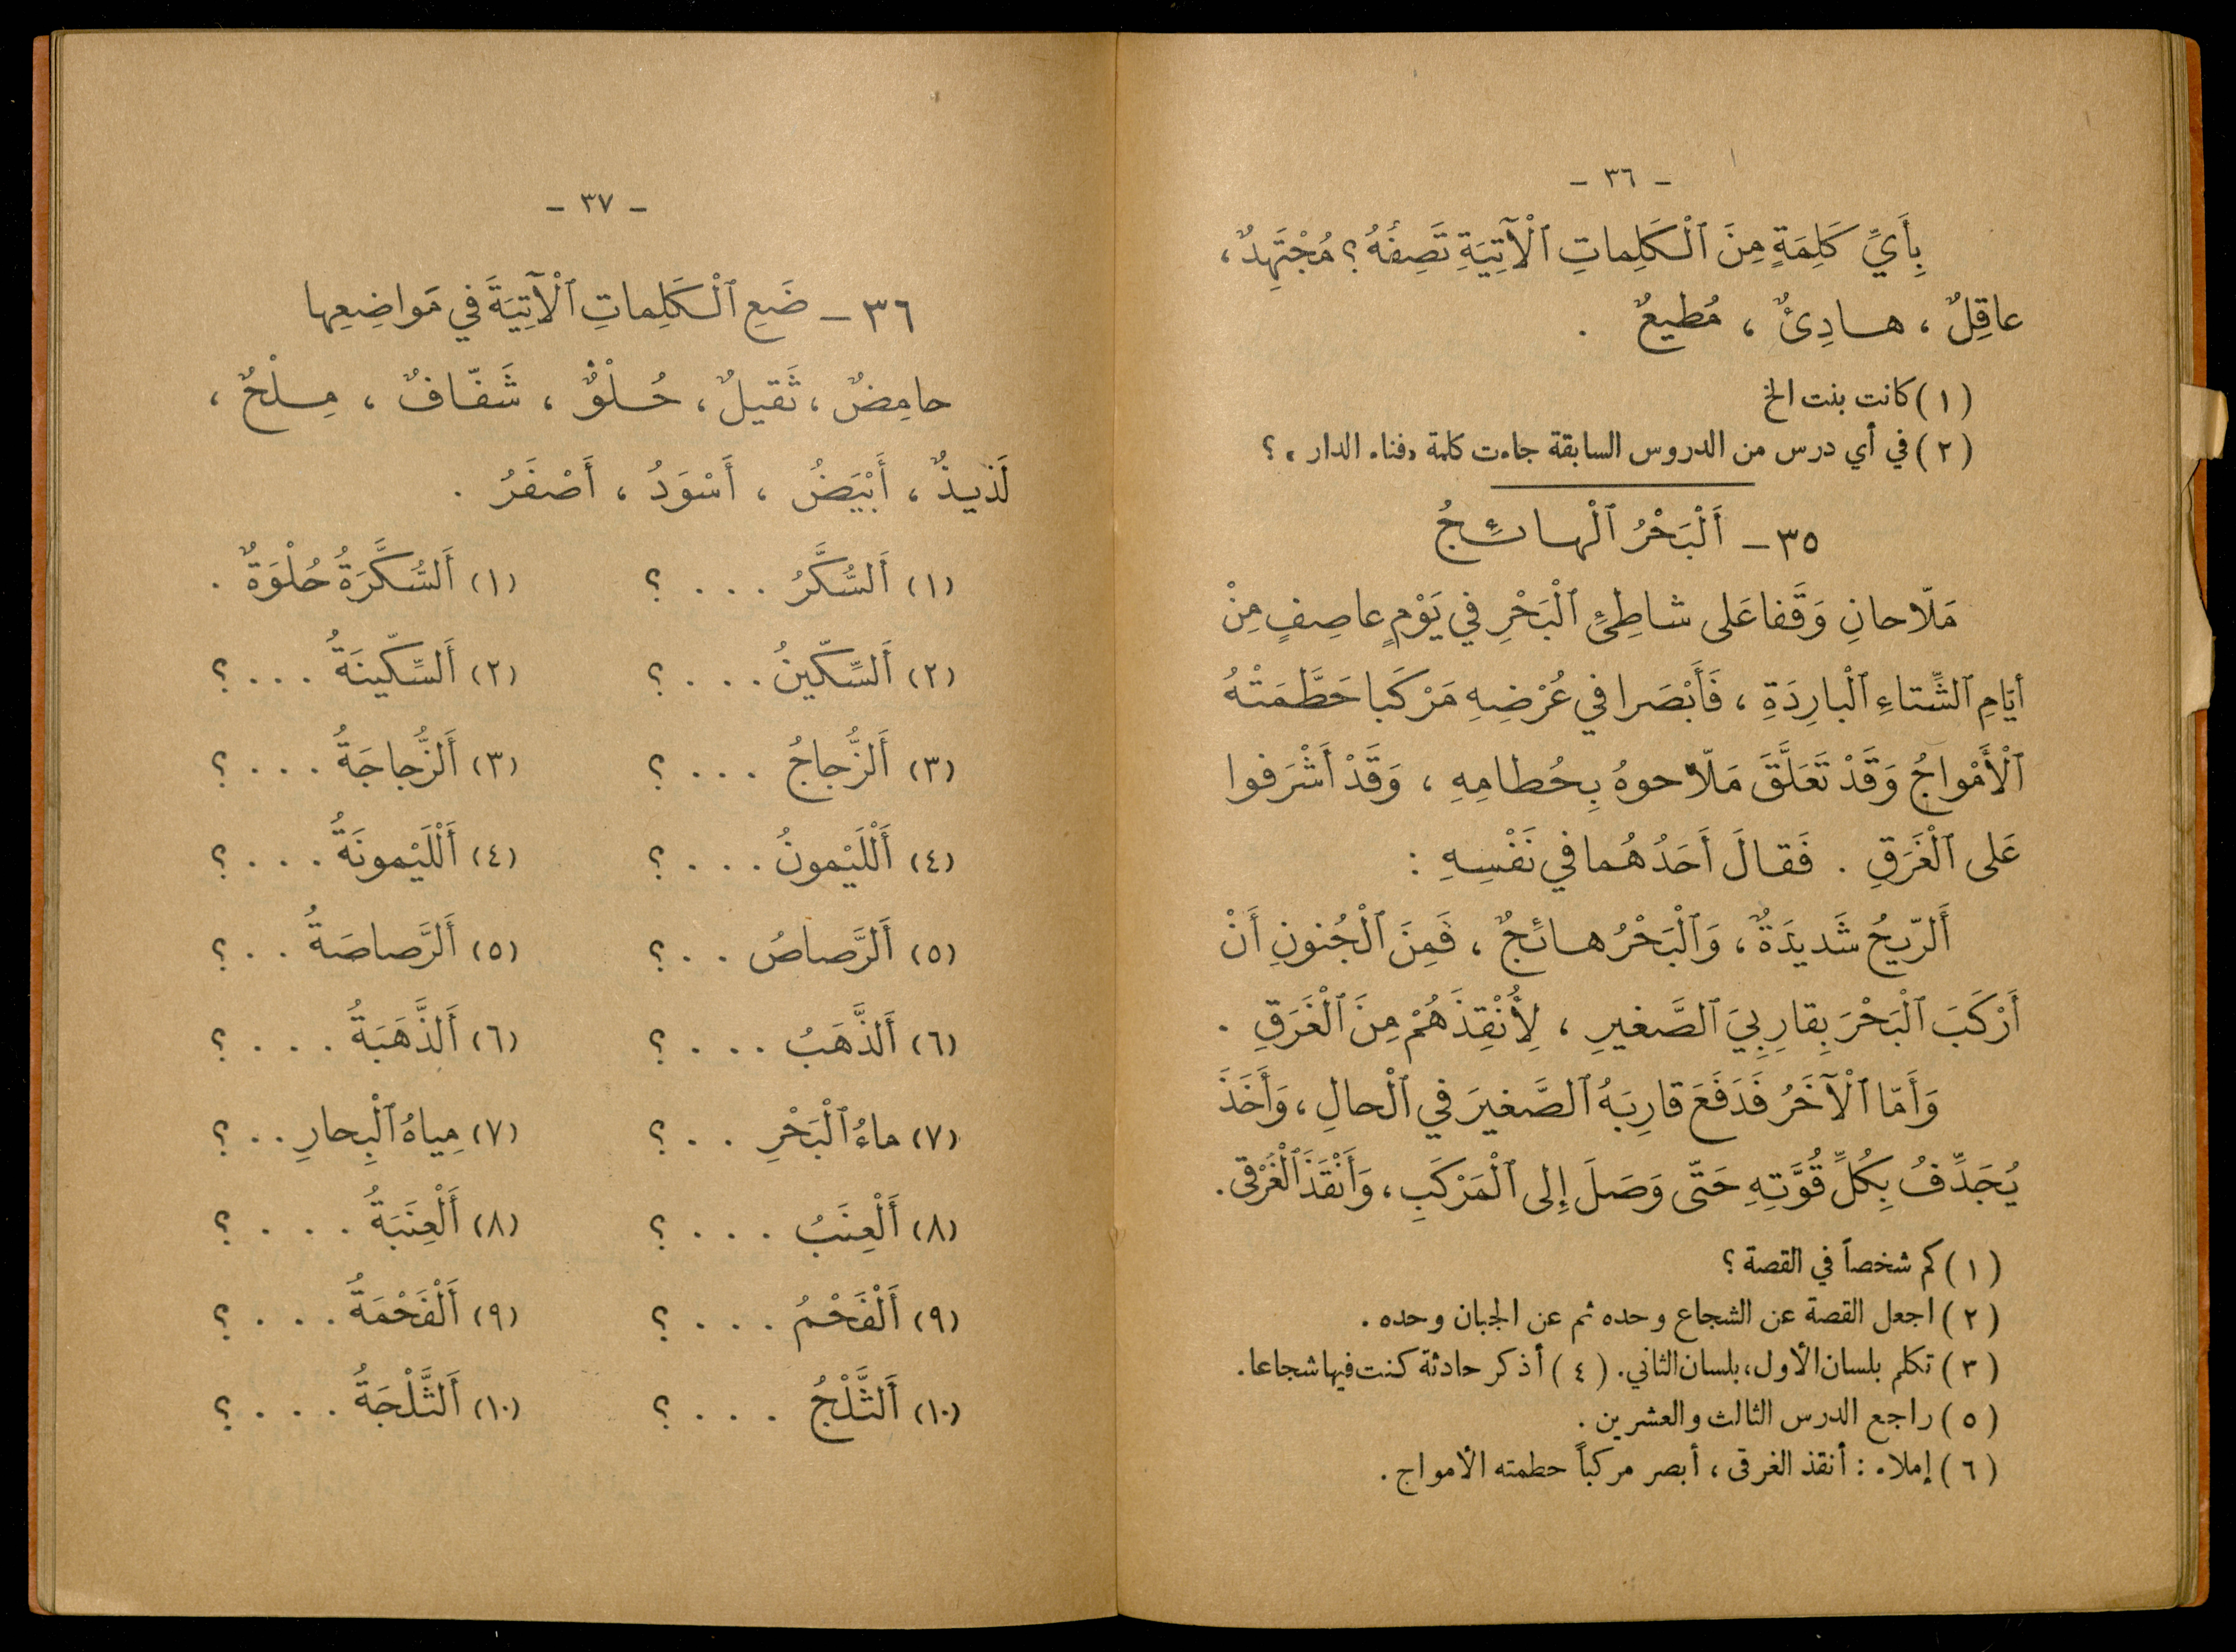 - ٣٦ -
بِأَيِّ كَلِمَةٍ مِنَ ٱلْكَلِماتِ ٱلْآتِيَةِ تَصِفُهُ ؟ مُجْتَهِدٌ ،
عاقِلٌ ، هادِئٌ ، مُطيعٌ .
( ١ ) كانت بنت الخ
( ٢ ) في أي درس من الدروس السابقة جاءت كلمة «فناء الدار» ؟
٣٥ - أَلْبَحْرُ ٱلْهائِجُ
مَلّاحانِ وَقَفا عَلى شاطِئِ ٱلْبَحْرِ في يَوْمٍ عاصِفٍ مِنْ
أيّامِ ٱلشِّتاءِ ٱلْبارِدَةِ ، فَأَبْصَرا في عُرْضِهِ مَرْكَبا حَطَّمَتْهُ
ٱلْأَمْواجُ وَقَدْ تَعَلَّقَ مَلّاحوهُ بِحُطامِهِ ، وَقَدْ أَشْرَفوا
عَلى ٱلْغَرَقِ . فَقالَ أَحَدُهُما في نَفْسِهِ :
أَلرّيحُ شَديدَةٌ ، وَٱلْبَحْرُ هائِجٌ ، فَمِنَ ٱلْجُنونِ أَنْ
أَرْكَبَ ٱلْبَحْرَ بِقارِبِيَ ٱلصَّغيرِ ، لِأُنْقِذَهُمْ مِنَ ٱلْغَرَقِ .
وَأَمّا ٱلْآخَرُ فَدَفَعَ قارِبَهُ ٱلصَّغيرَ في ٱلْحالِ ، وَأَخَذَ
يُجَدِّفُ بِكُلِّ قُوَّتِهِ حَتّى وَصَلَ إِلى ٱلْمَرْكَبِ ، وَأَنْقَذَ ٱلْغَرْقى .
( ١ ) كم شخصاً في القصة ؟
( ٢ ) اجعل القصة عن الشجاع وحده ثم عن الجبان وحده .
( ٣ ) تكلم بلسان الأول، بلسان الثاني. ( ٤ ) أذكر حادثة كنت فيها شجاعا .
( ٥ ) راجع الدرس الثالث والعشرين .
( ٦ ) إملاء : أنقذ الغرقى ، أبصر مركباً حطمته الأمواج .
- ٣٧ -
٣٦ - ضَعِ ٱلْكَلِماتِ ٱلْآتِيَةَ في مَواضِعِها
حامِضٌ ، ثَقيلٌ ، حُلْوٌ ، شَفّافٌ ، مِلْحٌ ،
لَذيذٌ ، أَبْيَضُ ، أَسْوَدُ ، أَصْفَرُ .
(١) أَلسُّكَّرُ . . . ؟ (١) أَلسُّكَّرَةُ حُلْوَةٌ .
(٢) أَلسِّكّينُ . . . ؟ (٢) أَلسِّكّينَةُ . . . ؟
(٣) أَلزُّجاجُ . . . ؟ (٣) أَلزُّجاجَةُ . . . ؟
(٤) أَللَّيْمونُ . . . ؟ (٤) أَللَّيْمونَةُ . . . ؟
(٥) أَلرَّصاصُ . . ؟ (٥) أَلرَّصاصَةُ . . ؟
(٦) أَلذَّهَبُ . . . ؟ (٦) أَلذَّهَبَةُ . . . ؟
(٧) ماءُ ٱلْبَحْرِ . . ؟ (٧) مِياهُ ٱلْبِحارِ . . ؟
(٨) أَلْعِنَبُ . . . ؟ (٨) أَلْعِنَبَةُ . . . ؟
(٩) أَلْفَحْمُ . . . ؟ (٩) أَلْفَحْمَةُ . . . ؟
(١٠) أَلثَّلْجُ . . . ؟ (١٠) أَلثَّلْجَةُ . . . ؟